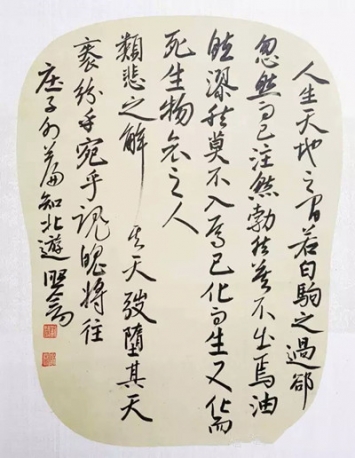 人生天地之間若白駒之過郤
忽然而已注然勃然莫不出焉油
然漻然莫不入焉已化而生又化而
死生物哀之人
類悲之解其天弢墮其天
袠紛乎宛乎魂魄將往
庄子外篇知北遊